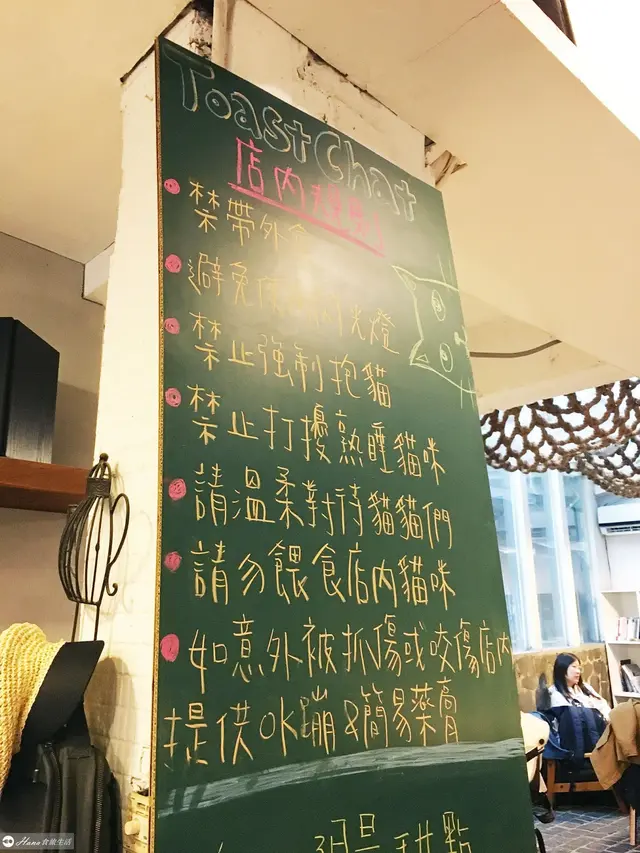 Toast Chat
店內規則
禁帶外食
避免使用閃光燈
禁止強制抱貓
禁止打擾熟睡貓咪
請溫柔對待貓貓們
請勿餵食店內貓咪
如意外被抓傷或咬傷店內
提供OK蹦&簡易藥膏
甜點
Hana食旅生活